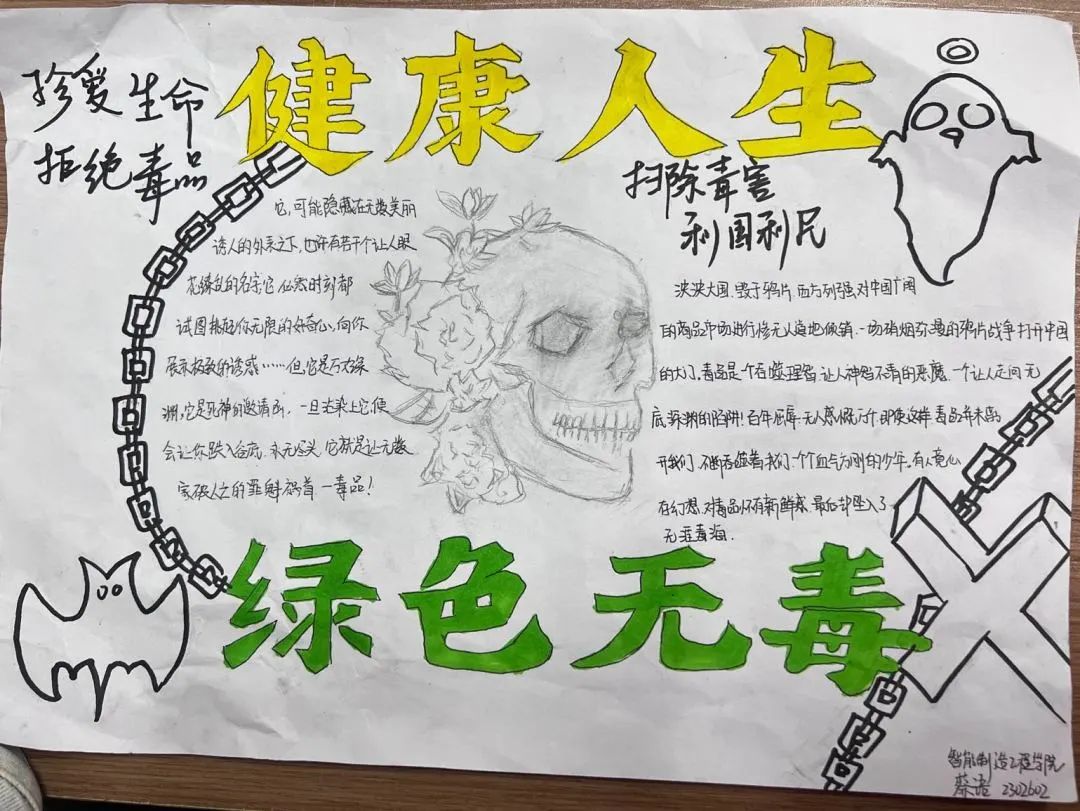 健康人生
珍爱生命
拒绝毒品
扫除毒害
利国利民
它,可能隐藏在无数美丽
诱人的外表之下,也许有若干个让人眼
花缭乱的名字它,仏然时刻都
试图挑起你无限的好奇心,向你
展示极致的诱惑……但,它是万丈深
渊,它是死神的邀请函,一旦沾染上它,便
会让你跌入谷底,永无尽头,它就是让无数
家破人亡的罪魁祸首—毒品!
泱泱大国,毁于鸦片,西方列强,对中国广阔
的商品市场进行惨无人道地倾销,一场硝烟弥漫的鸦片战争打开中国
的大门,毒品是个吞噬理智,让人神智不清的恶魔,一个让人走向无
底深渊的陷阱!百年屈辱,无人感慨万个,即使这样,毒品并未离
开我们,不断吞噬着我们一个个血气方刚的少年,有人竟心
在幻想,对毒品怀有新鲜感,最后却坠入了
无涯毒海.
绿色无毒
智能制造工程学院
2302602